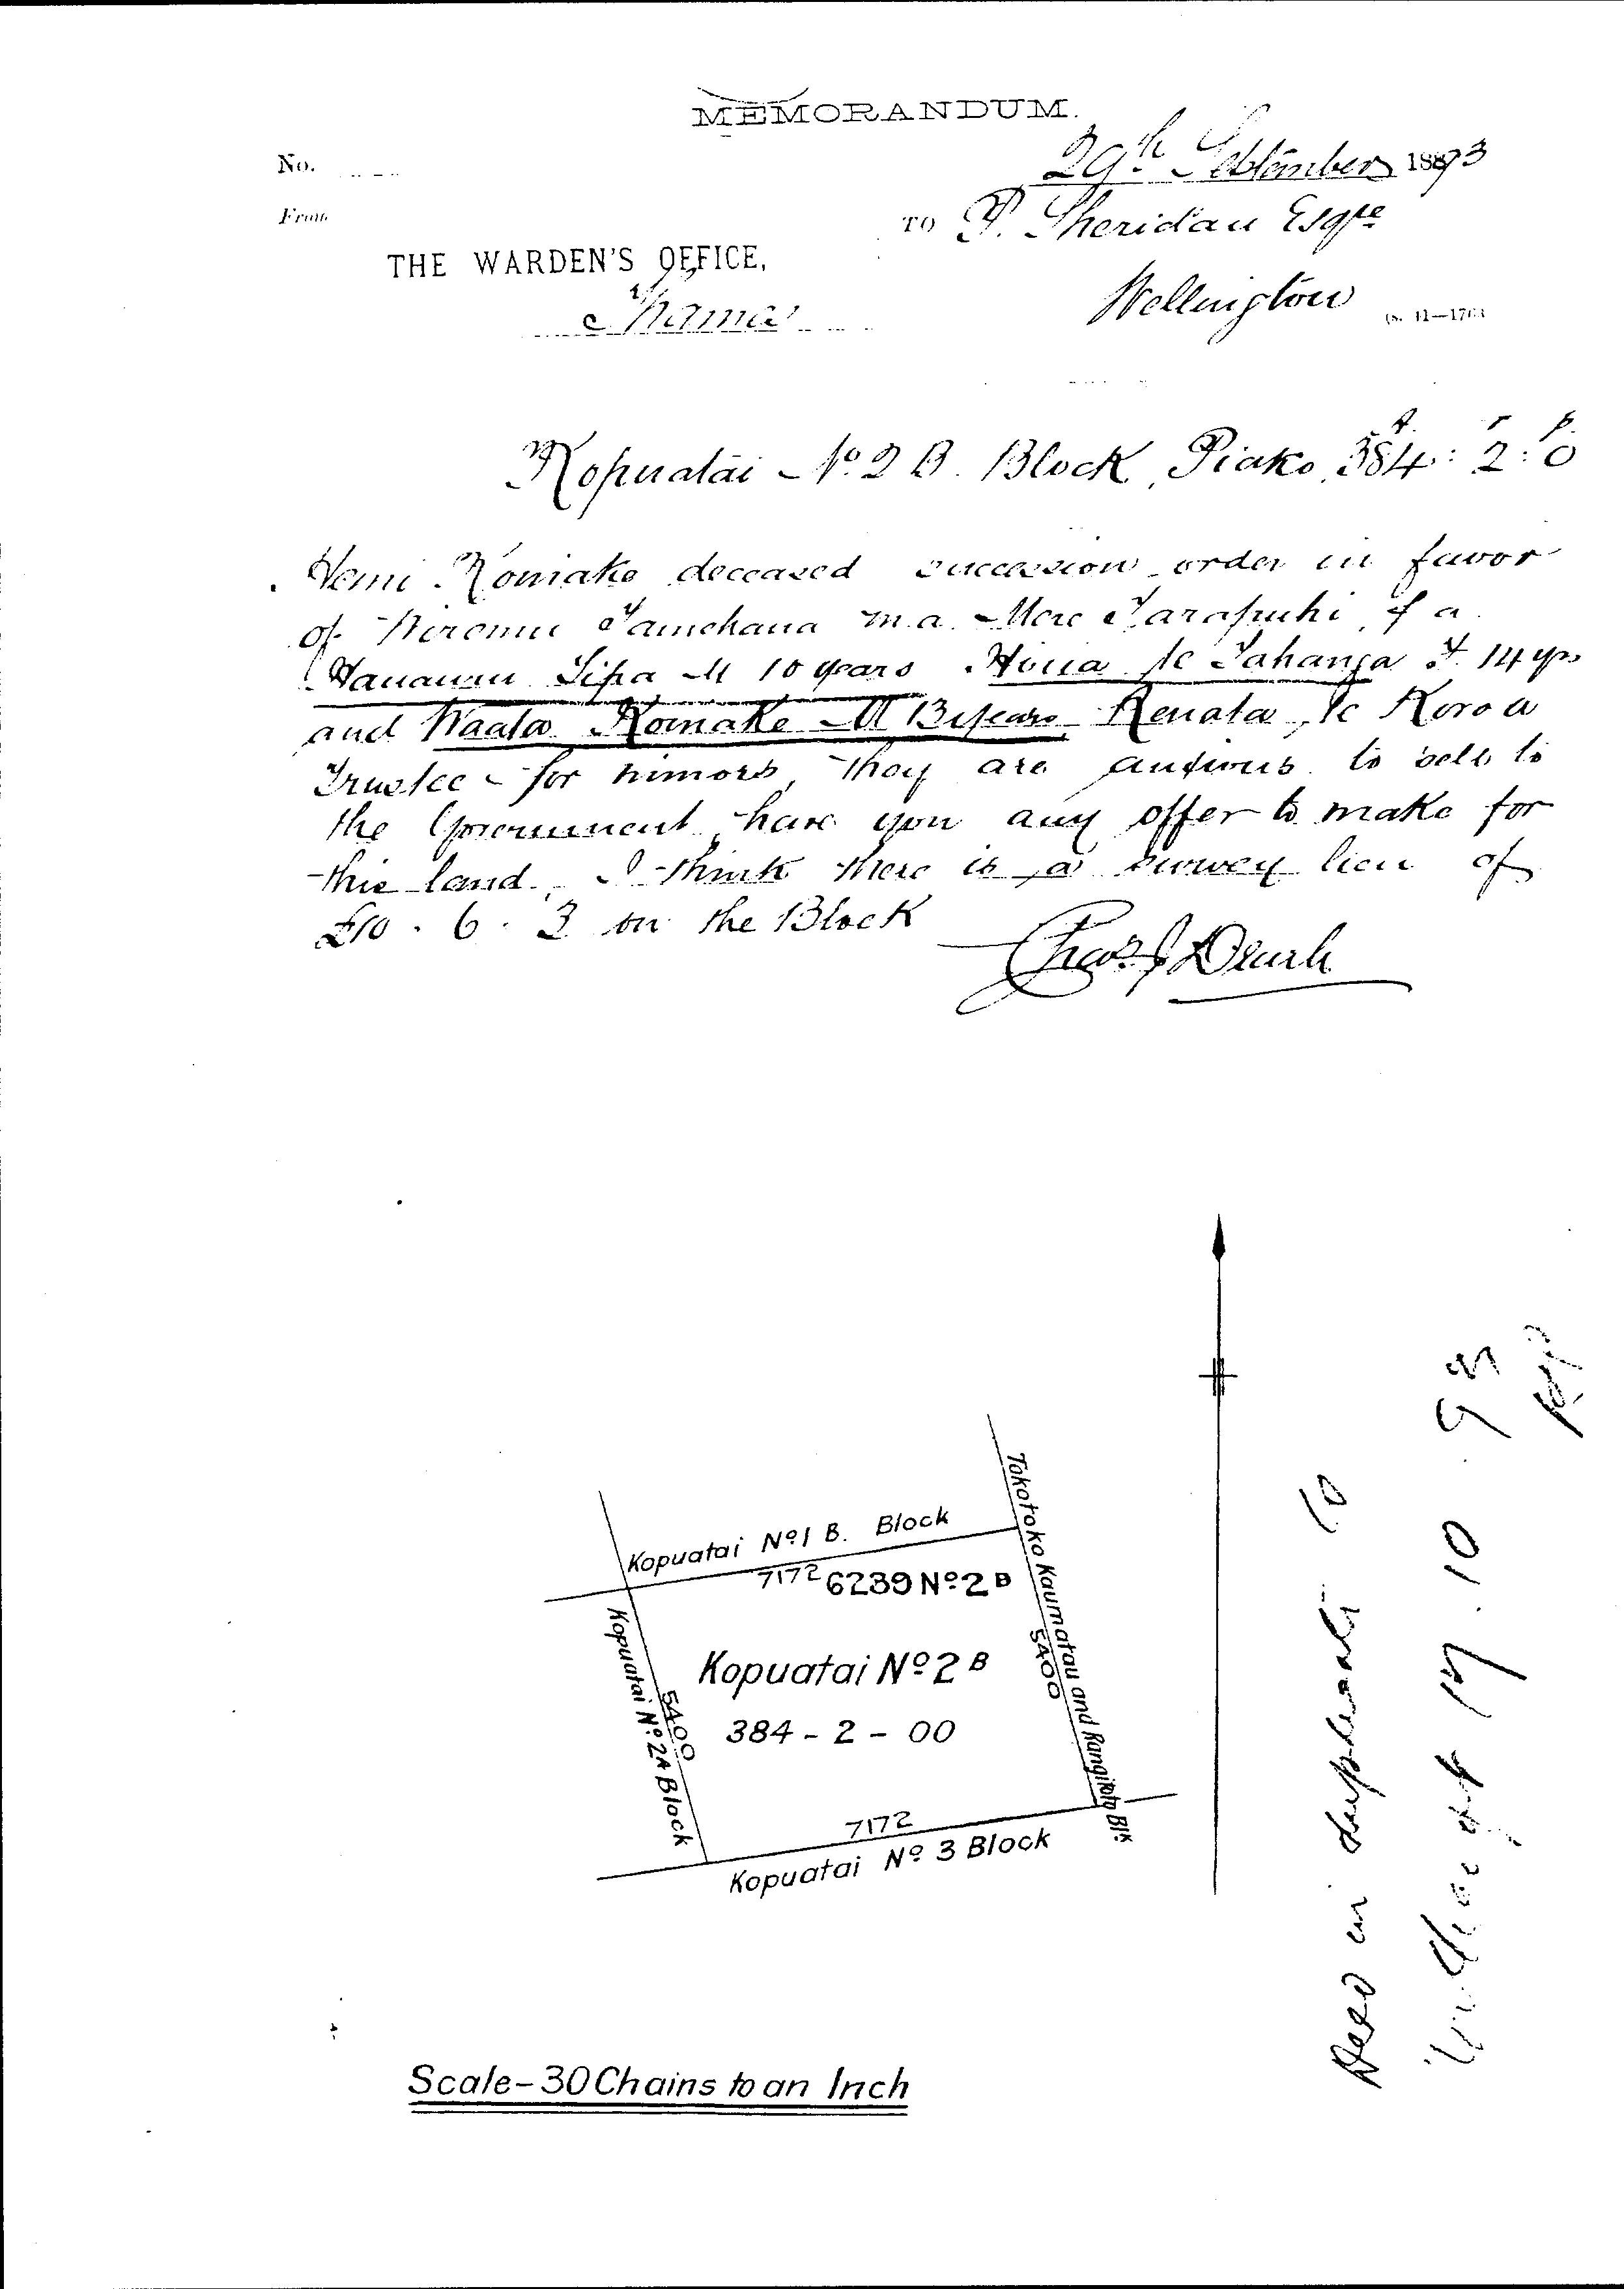 MEMORANDUM.
No.
29th September 1893
From
TO P. Sheridan Esqre
THE WARDEN'S OFFICE,
Thames
Wellington
Kopuatai No. 2 B. Block, Piako, 384 : 2 : 0
a. r p.
Hemi Komake deceased succession order in favor
of Wiremu Tamehana m.a. Mere Tarapuhi, f a
Tipa M 10 years Hina te Tahanga F. 14 yrs
and Waata Komake M 13 years Renata te Koroa
Trustee for minors, They are anxious to sell to
the Government, have you any offer to make for
this land. I think there is a survey lien of
£10 . 6 . 3 on the Block
Kopuatai No 1 B. Block
7172
6239 No 2 B
Tokotoko Kaumatau and Rangitoto Blk
5400
Kopuatai No 2 B
384 - 2 - 00
Kopuatai No 2A Block
5400
7172
Kopuatai No 3 Block
Scale - 30 Chains to an Inch
Deed in duplicate to
17 . 10 . 93